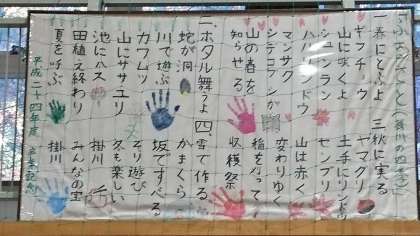 一 春にとぶよ
ギフチョウ
山に咲くよ
シュンラン
ハルリンドウ
マンサク
シデコブシが
山の春を
知らせる
二 ホタル舞うよ
蛇が洞
川で遊ぶ
カワムツ
山にササユリ
池にハス
田植え終わり
夏を呼ぶ
三 秋に実る
ヤマグリ
土手にリンドウ
センブリ
山は赤く
変わりゆく
稲を刈って
収穫祭
四 雪で作る
かまくら
坂ですべる
そり遊び
冬も楽しい
掛川
みんなの宝
掛川
平成二十四年度 卒業記念